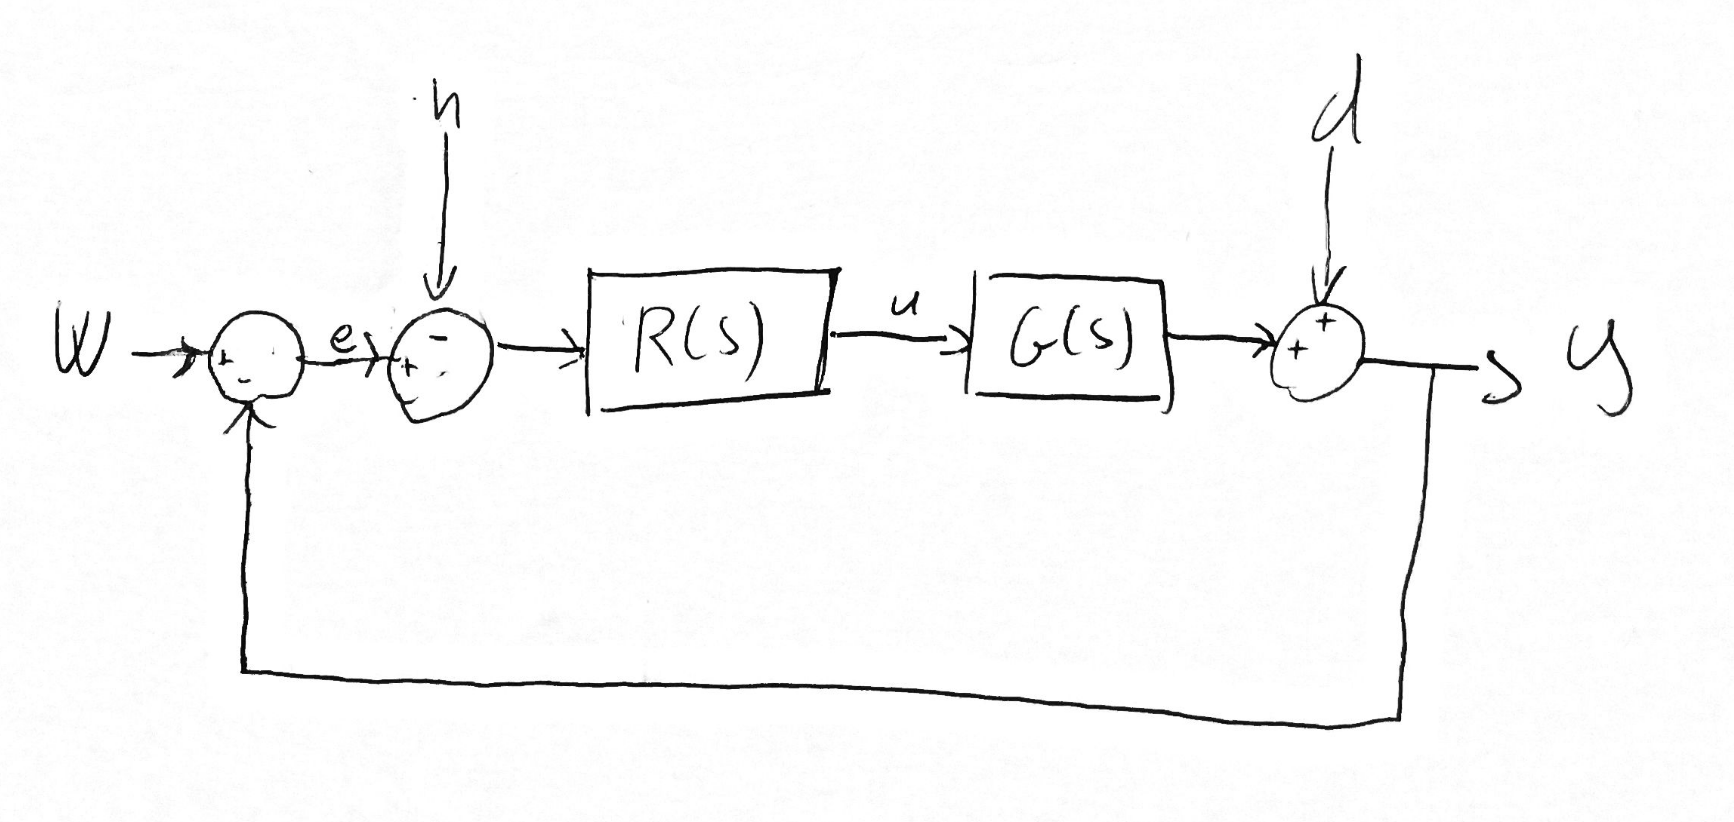 n d
W + - e + - R(s) u G(s) + + y